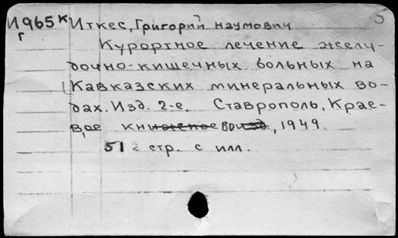 И965к Иткес, Григорий Наумович 5
г
Курортное лечение желу-
дочно-кишечных больных на
Кавказских минеральных во-
дах. Изд. 2-е. Ставрополь, Крае-
вое книжное изд., 1949.
51 стр. с илл.